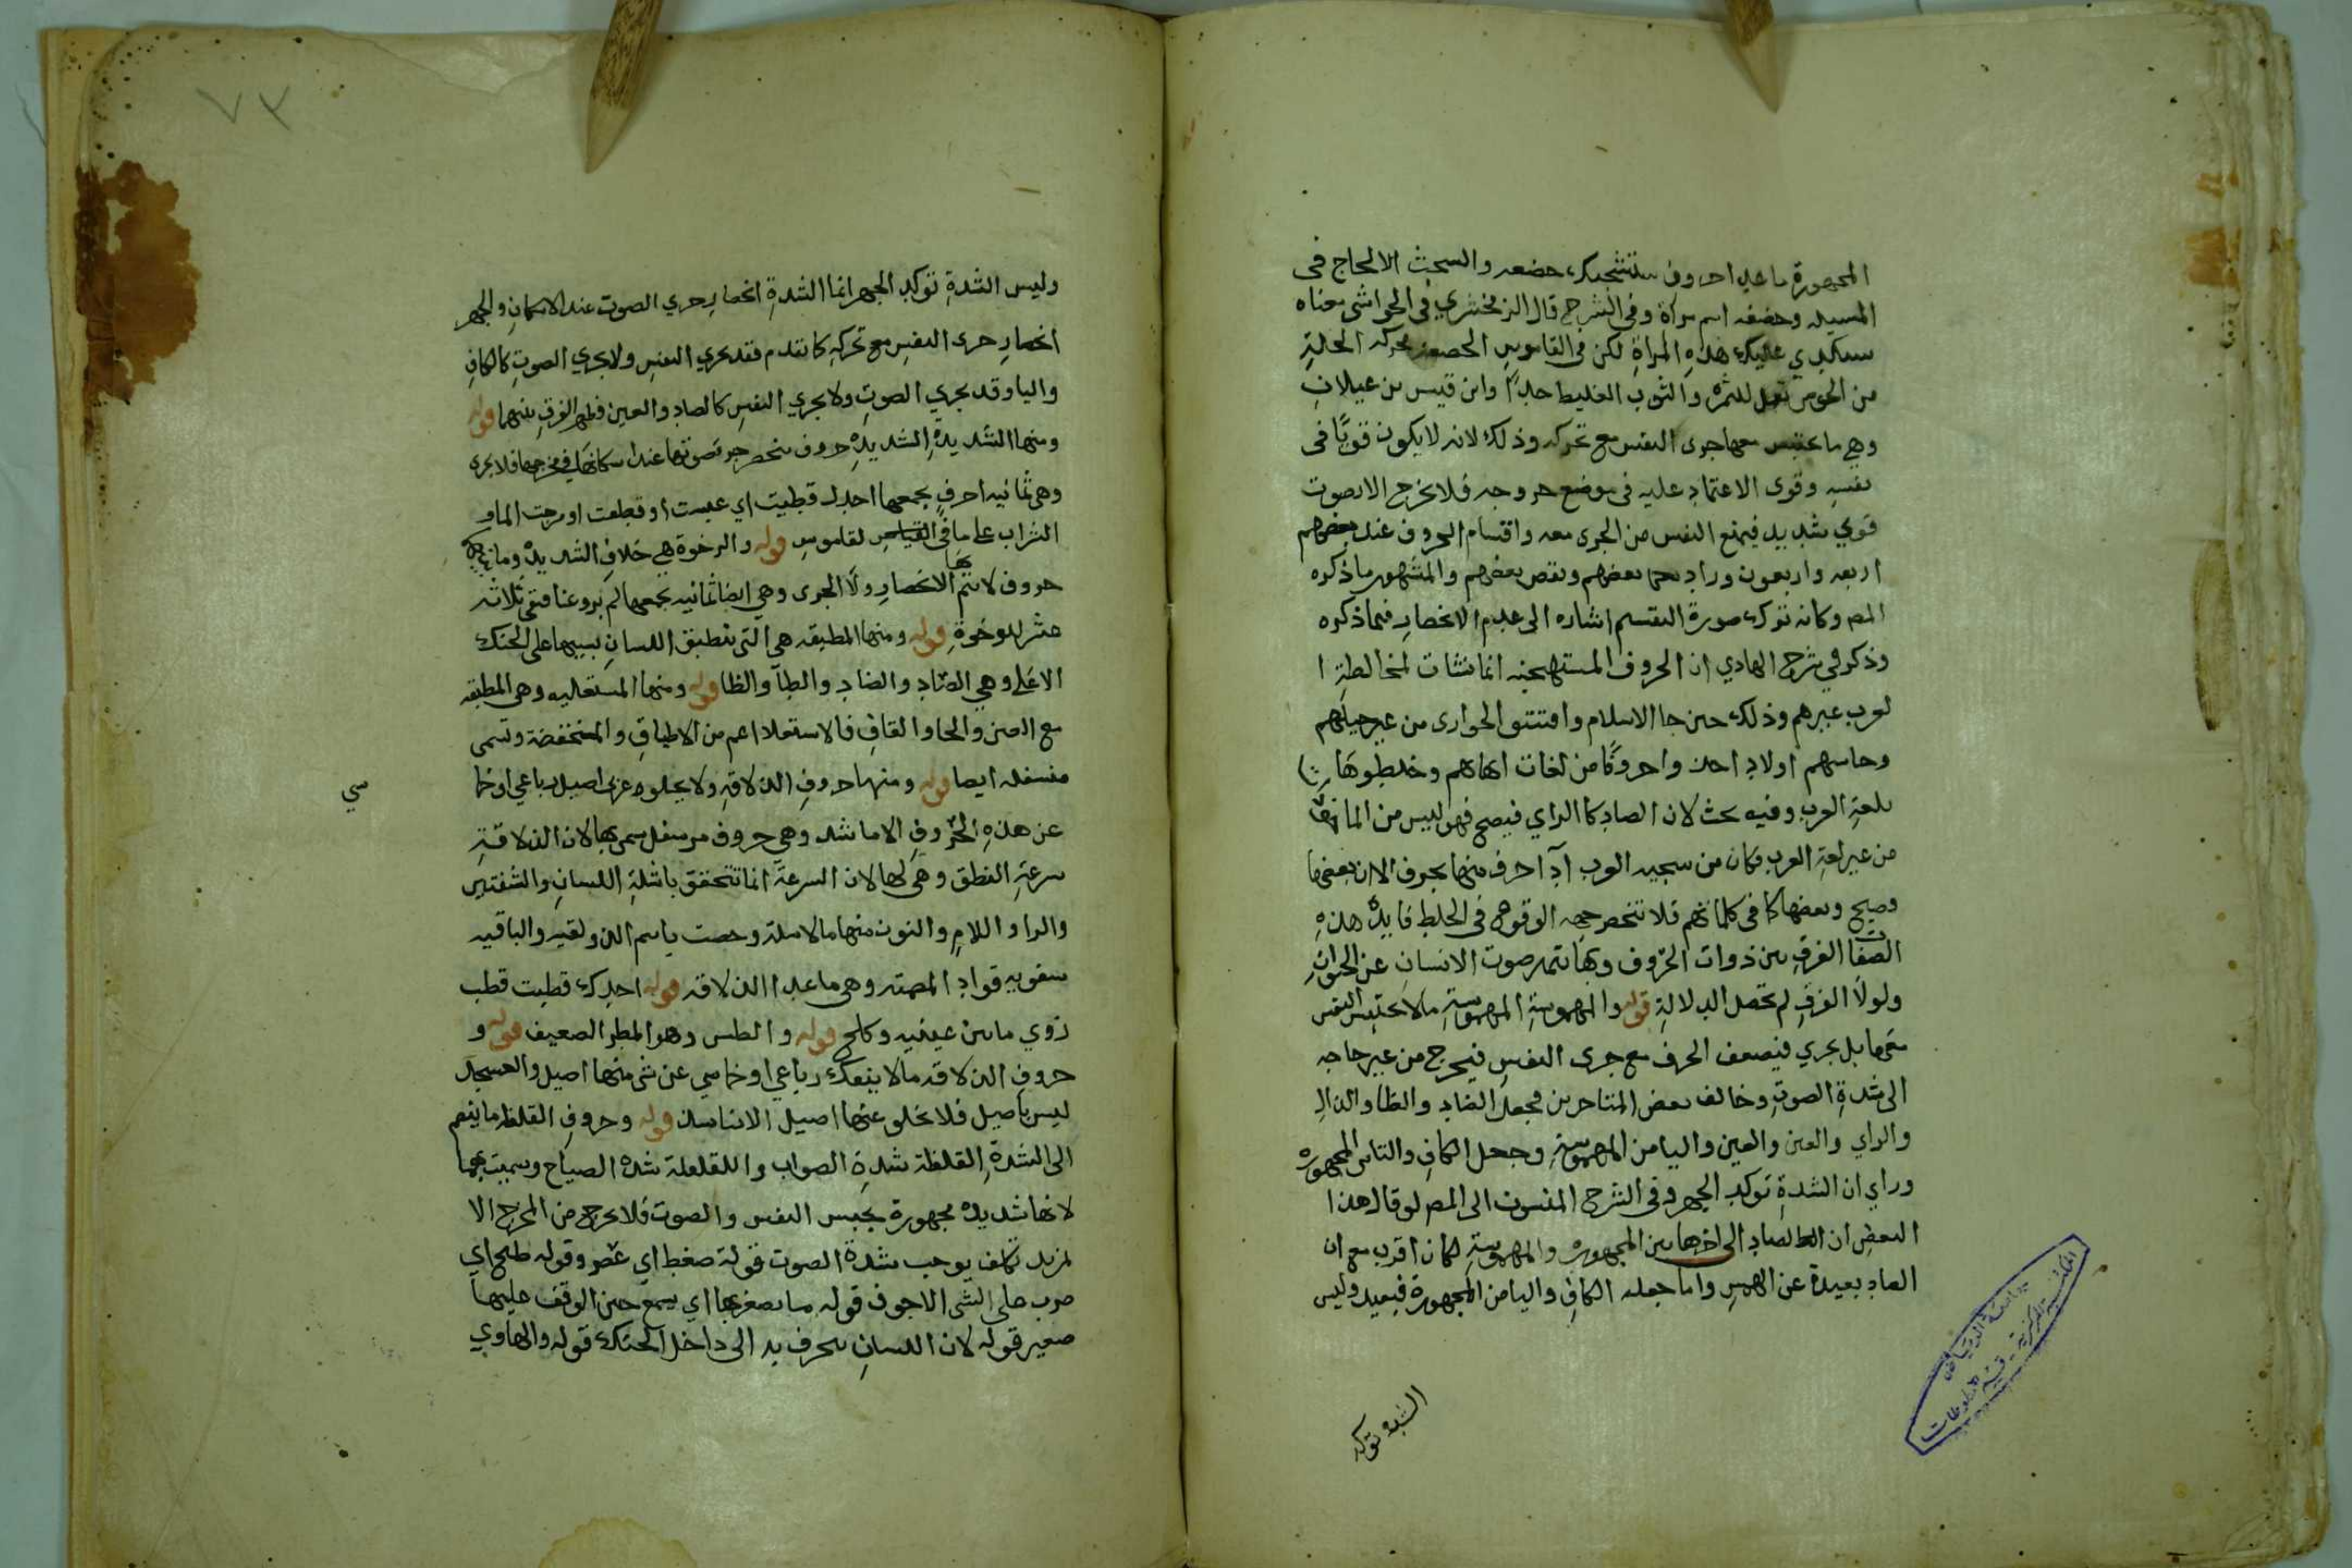 المجهورة ما عدا حروف ستشحثك خصفه والشحث الالحاح فى
المسيله وخصفه اسم مراة وفى الشرح قال الزمخشري فى الحواشى معناه
ستكدي عليك هذه المراة لكن فى القاموس الخصفة محركه الجلة
من الخوص تعمل للتمر والثوب الغليظ جدًا وابن قيس بن عيلان
وهي ما يحتبس معها جرى النفس مع تحركه وذلك لانه لا يكون قويًا فى
نفسه وقوى الاعتماد عليه فى موضع خروجه فلا يخرج الا بصوت
قوي شديد فيمنع النفس من الجرى معه واقسام الحروف عند بعضهم
اربعه واربعون وزاد بعضهم ونقص بعضهم والمشهور ما ذكره
المص وكانه ترك صورة التقسيم اشاره الى عدم الانحصار فيما ذكره
وذكر في شرح الهادي ان الحروف المستهجنه انما نشات لمخالطة ا
لعرب غيرهم وذلك حين جا الاسلام واقتنتو الجوارى من غير جيلهم
وجاءهم اولاد اخذوا حروفًا من لغات امهاتهم وخلطوها
بلغة العرب وفيه بحث لان الصاد كالزاي فصيح فهو ليس من
من غير لغة العرب فكان من سجيه العرب احرف منها بحرف الا ان بعضها
فصيح وبعضها كما فى كلماتهم فلا تنحصر جهه الوقوع فى الخلط فايدة هذه
الصفات الفرق بين ذوات الحروف وبها يتميز صوت الانسان عن الحيوان
ولولا الفرق لم تحصل الدلالة قوله والمهموسة المهموسة ما لا يحتبس النفس
معها بل يجري فيضعف الحرف مع جرى النفس فيخرج من غير حاجه
الى شدة الصوت وخالف بعض المتاخرين فجعل الضاد والظا والذال
والزاي والعين والغين واليا من المهموسة وجعل الكاف والتا من المجهوره
وراي ان الشدة توكد الجهر وفى الشرح المنسوب الى المص لو قال هذا
البعض ان الصاد الى اخرها بين المجهوره والمهموسة لكان اقرب مع ان
الصاد بعيدة عن الهمس واما جعله الكاف واليا من المجهورة فبعيد وليس
الشده توكد
المكتبة المركزية - قسم المخطوطات
جامعة الرياض
٧٣
وليس الشدة توكد الجهر انما الشدة انحصار جري الصوت عند الاسكان والجهر
انحصار جرى النفس مع تحركه كما تقدم فقد يجري النفس ولا يجري الصوت كالكاف
واليا وقد يجري الصوت ولا يجري النفس كالضاد والعين فظهر الفرق بينهما قوله
ومنها الشديدة الشديدة حروف ينحصر جرى صوتها عند اسكانها في مخرجها فلا يجرى
وهى ثمانيه احرف يجمعها اجدك قطبت اي عبست او قطعت او مزجت الما و
الشراب على ما فى القاموس قوله والرخوة هي خلاف الشديدة وما بينهما
حروف لا يتم بها الانحصار ولا الجرى وهي ايضا ثمانيه يجمعها لم يروعنا فبقى ثلاثه
عشر للرخوة قوله ومنها المطبقه هى التى ينطبق اللسان بسببها على الحنك
الاعلى وهي الصاد والضاد والطا والظا قوله ومنها المستعليه وهى المطبقه
مع الغين والخا والقاف فالاستعلا اعم من الاطباق والمنخفضة وتسمى
منسفله ايضا قوله ومنها حروف الذلاقه ولا يخلو عربى اصيل رباعي او خما
سي
عن هذه الحروف الا ما شذ وهي حروف مر بنفل سمى بها لان الذلاقة
سرعة النطق وهي لها لان السرعة انما تتحقق باسلة اللسان والشفتين
والرا واللام والنون منها بالاسلة وخصت باسم الذولقيه والباقيه
شفويه قوله المصمته وهى ما عدا الذلاقه قوله اجدك قطبت قطب
زوي ما بين عينيه وكلح قوله والطس وهو المطر الضعيف قوله و
حروف الذلاقه ما لا ينفك رباعي او خماسي عن شى منها اصيل والعسجد
ليس باصيل فلا يخلو عنها اصيل الا نادرا قوله وحروف القلقله ما ينضم
الى الشدة القلقلة شدة الصواب واللقلقلة شده الصياح وسميت بهما
لانها شديده مجهورة يحبس النفس والصوت فلا يخرج من المخرج الا
لمزيد تكلف يوجب شدة الصوت قوله ضغط اي عصر وقوله طبل اي
ضرب على الشى الاجوف قوله ما يصفر بها اي يسمع حين الوقف عليها
صفير قوله لان اللسان ينحرف به الى داخل الحنك قوله والهاوي